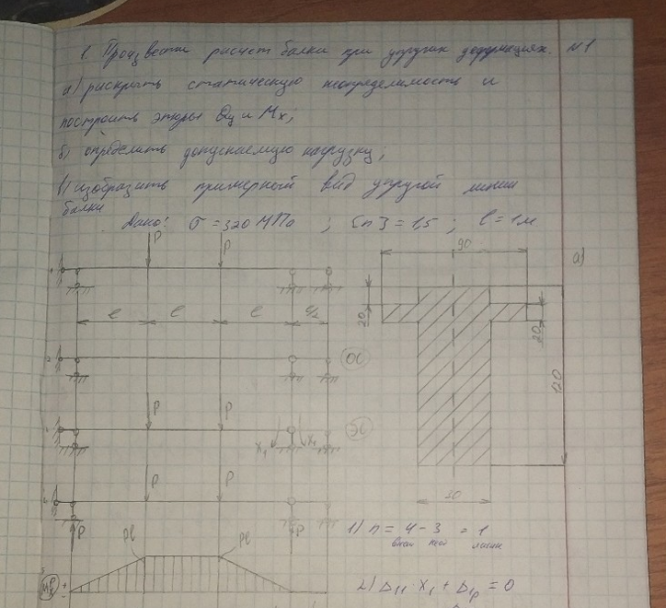 1. Произвести расчет балки при упругих деформациях. №1
а) раскрыть статическую неопределимость и
построить эпюры Qy и Mx;
б) определить допускаемую нагрузку;
в) изобразить примерный вид упругой линии
балки
Дано: σ = 320 МПа ; [n] = 1,5 ; l = 1м
P P 90 а)
l l l l/2 20 20 120
ОС
P P
X₁ X₁ ЭС
P P
30
P P
1) n = 4 - 3 = 1
Pl Pl
+ -
2) Δ₁₁ · X₁ + Δ₁p = 0